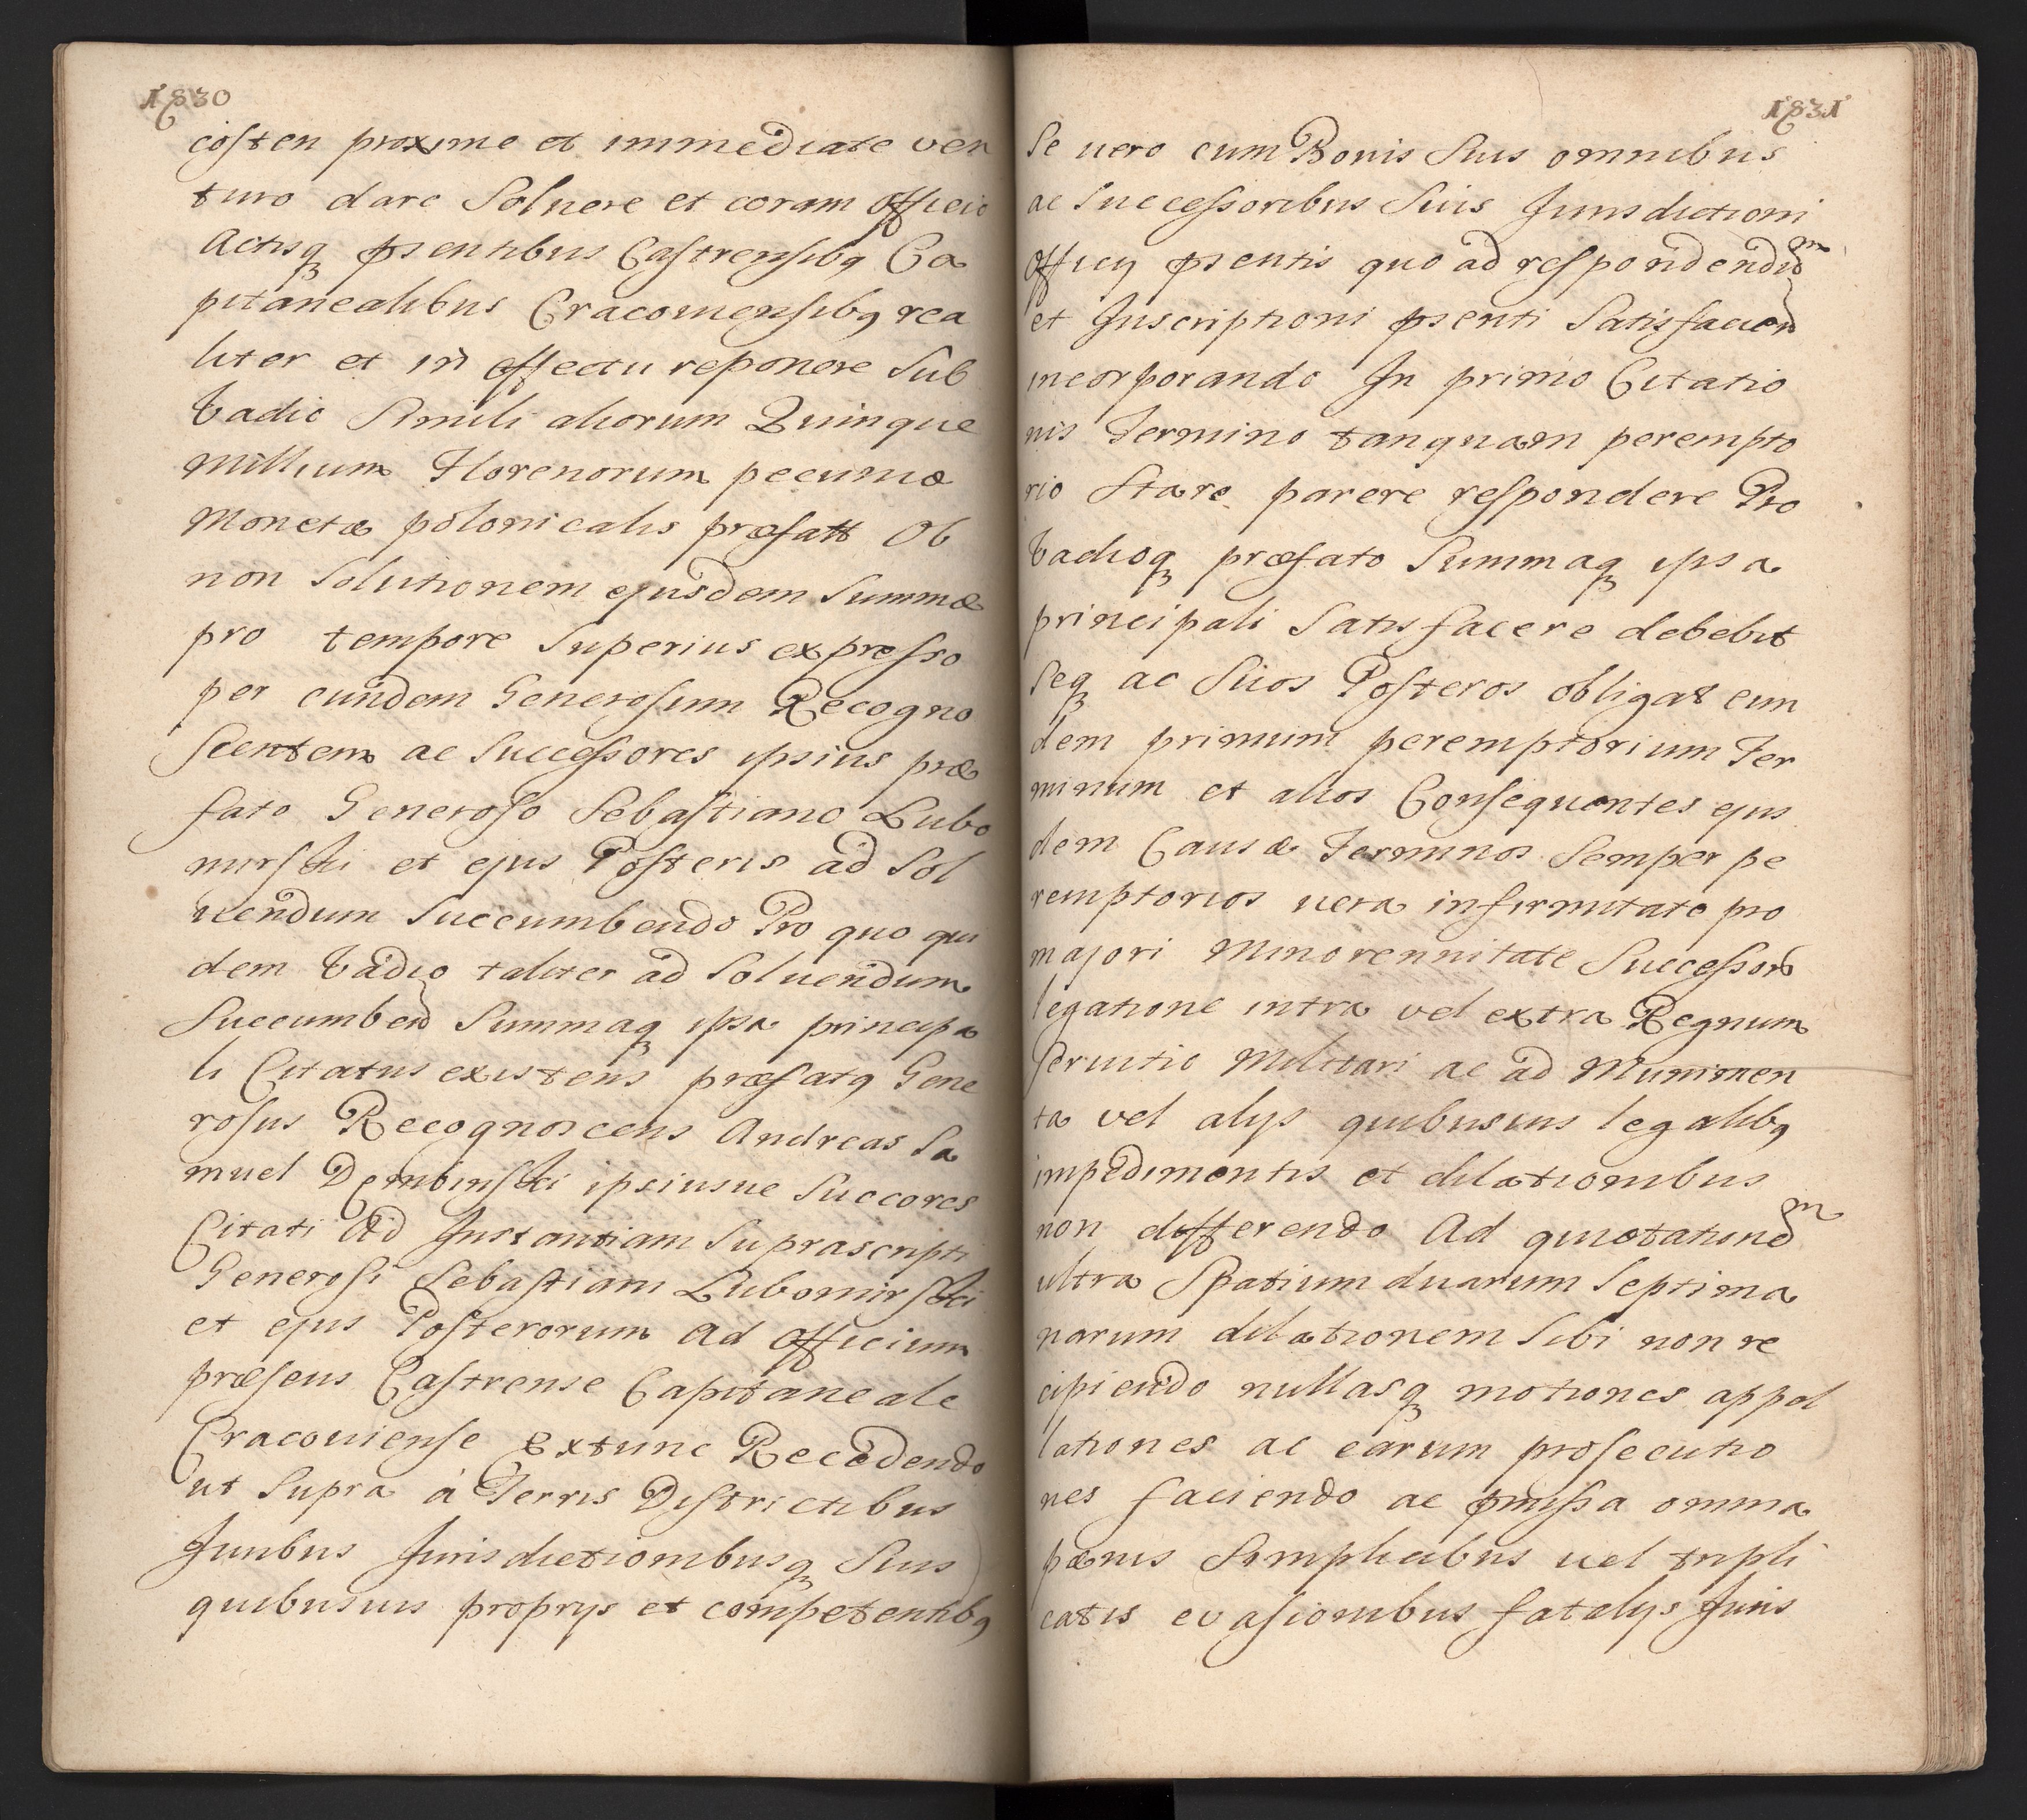 1830
cisten proxime et immediate ven
turo dare Soluere et coram Officio
Actisq psentibus Castrensibq Ca
pitanealibus Cracouiensibq rea
liter et in effectu reponere Sub
Vadio Simili aliorum Quinque
Millium Florenorum pecuniæ
Monetæ polonicalis præfatt Ob
non Solutionem ejusdem Summæ
pro tempore Superius expresso
per eundem Generosum Recogno
Scentem ac Successores ipsius præ
fato Generoso Sebastiano Lubo
mirski et ejus Posteris ad Sol
uendum Succumbendo Pro quo qui
dem Vadio taliter ad Soluendum
Succumben Summaq ipsa principa
li Citatus existens præfatq Gene
rosus Recognoscens Andreas Sa
muel Dembinski ipsiusue Succores
Citati Ad Instantiam Suprascripti
Generosi Sebastiani Lubomirski
et ejus Posterorum Ad Officium
præsens Castrense Capitaneale
Cracouiense Extunc Recedendo
ut Supra à Terris Districtibus
Juribus Jurisdictionibusq Suis
quibusuis proprys et competentibq
1831
Se uero cum Bonis Suis omnibus
ac Successoribus Suis Jurisdictioni
Officy psentis quo ad respondendum
et Inscriptioni psenti Satisfacien
incorporando In primo Citatio
nis Termino tanquam perempto
rio Stare parere respondere Pro
Vadioq præfato Summaq ipsa
principali Satisfacere debebit
Seq ac Suos Posteros obligat eun
dem primum peremptorium Ter
minum et alios Consequentes ejus
dem Causæ Terminos Semper pe
remptorios uera infirmitate pro
majori Minorennitate Successor
legatione intra vel extra Regnum
seruitio Militari ac ad Munimen
ta vel alys quibusuis legalibq
impedimentis et dilationibus
non differendo Ad quietationem
ultra Spatium duarum Septima
narum dilationem Sibi non re
cipiendo nullasq motiones appel
lationes ac earum prosecutio
nes faciendo ac pmissa omnia
pænis Simplicibus uel tripli
catis evasionibus fatalys Juris